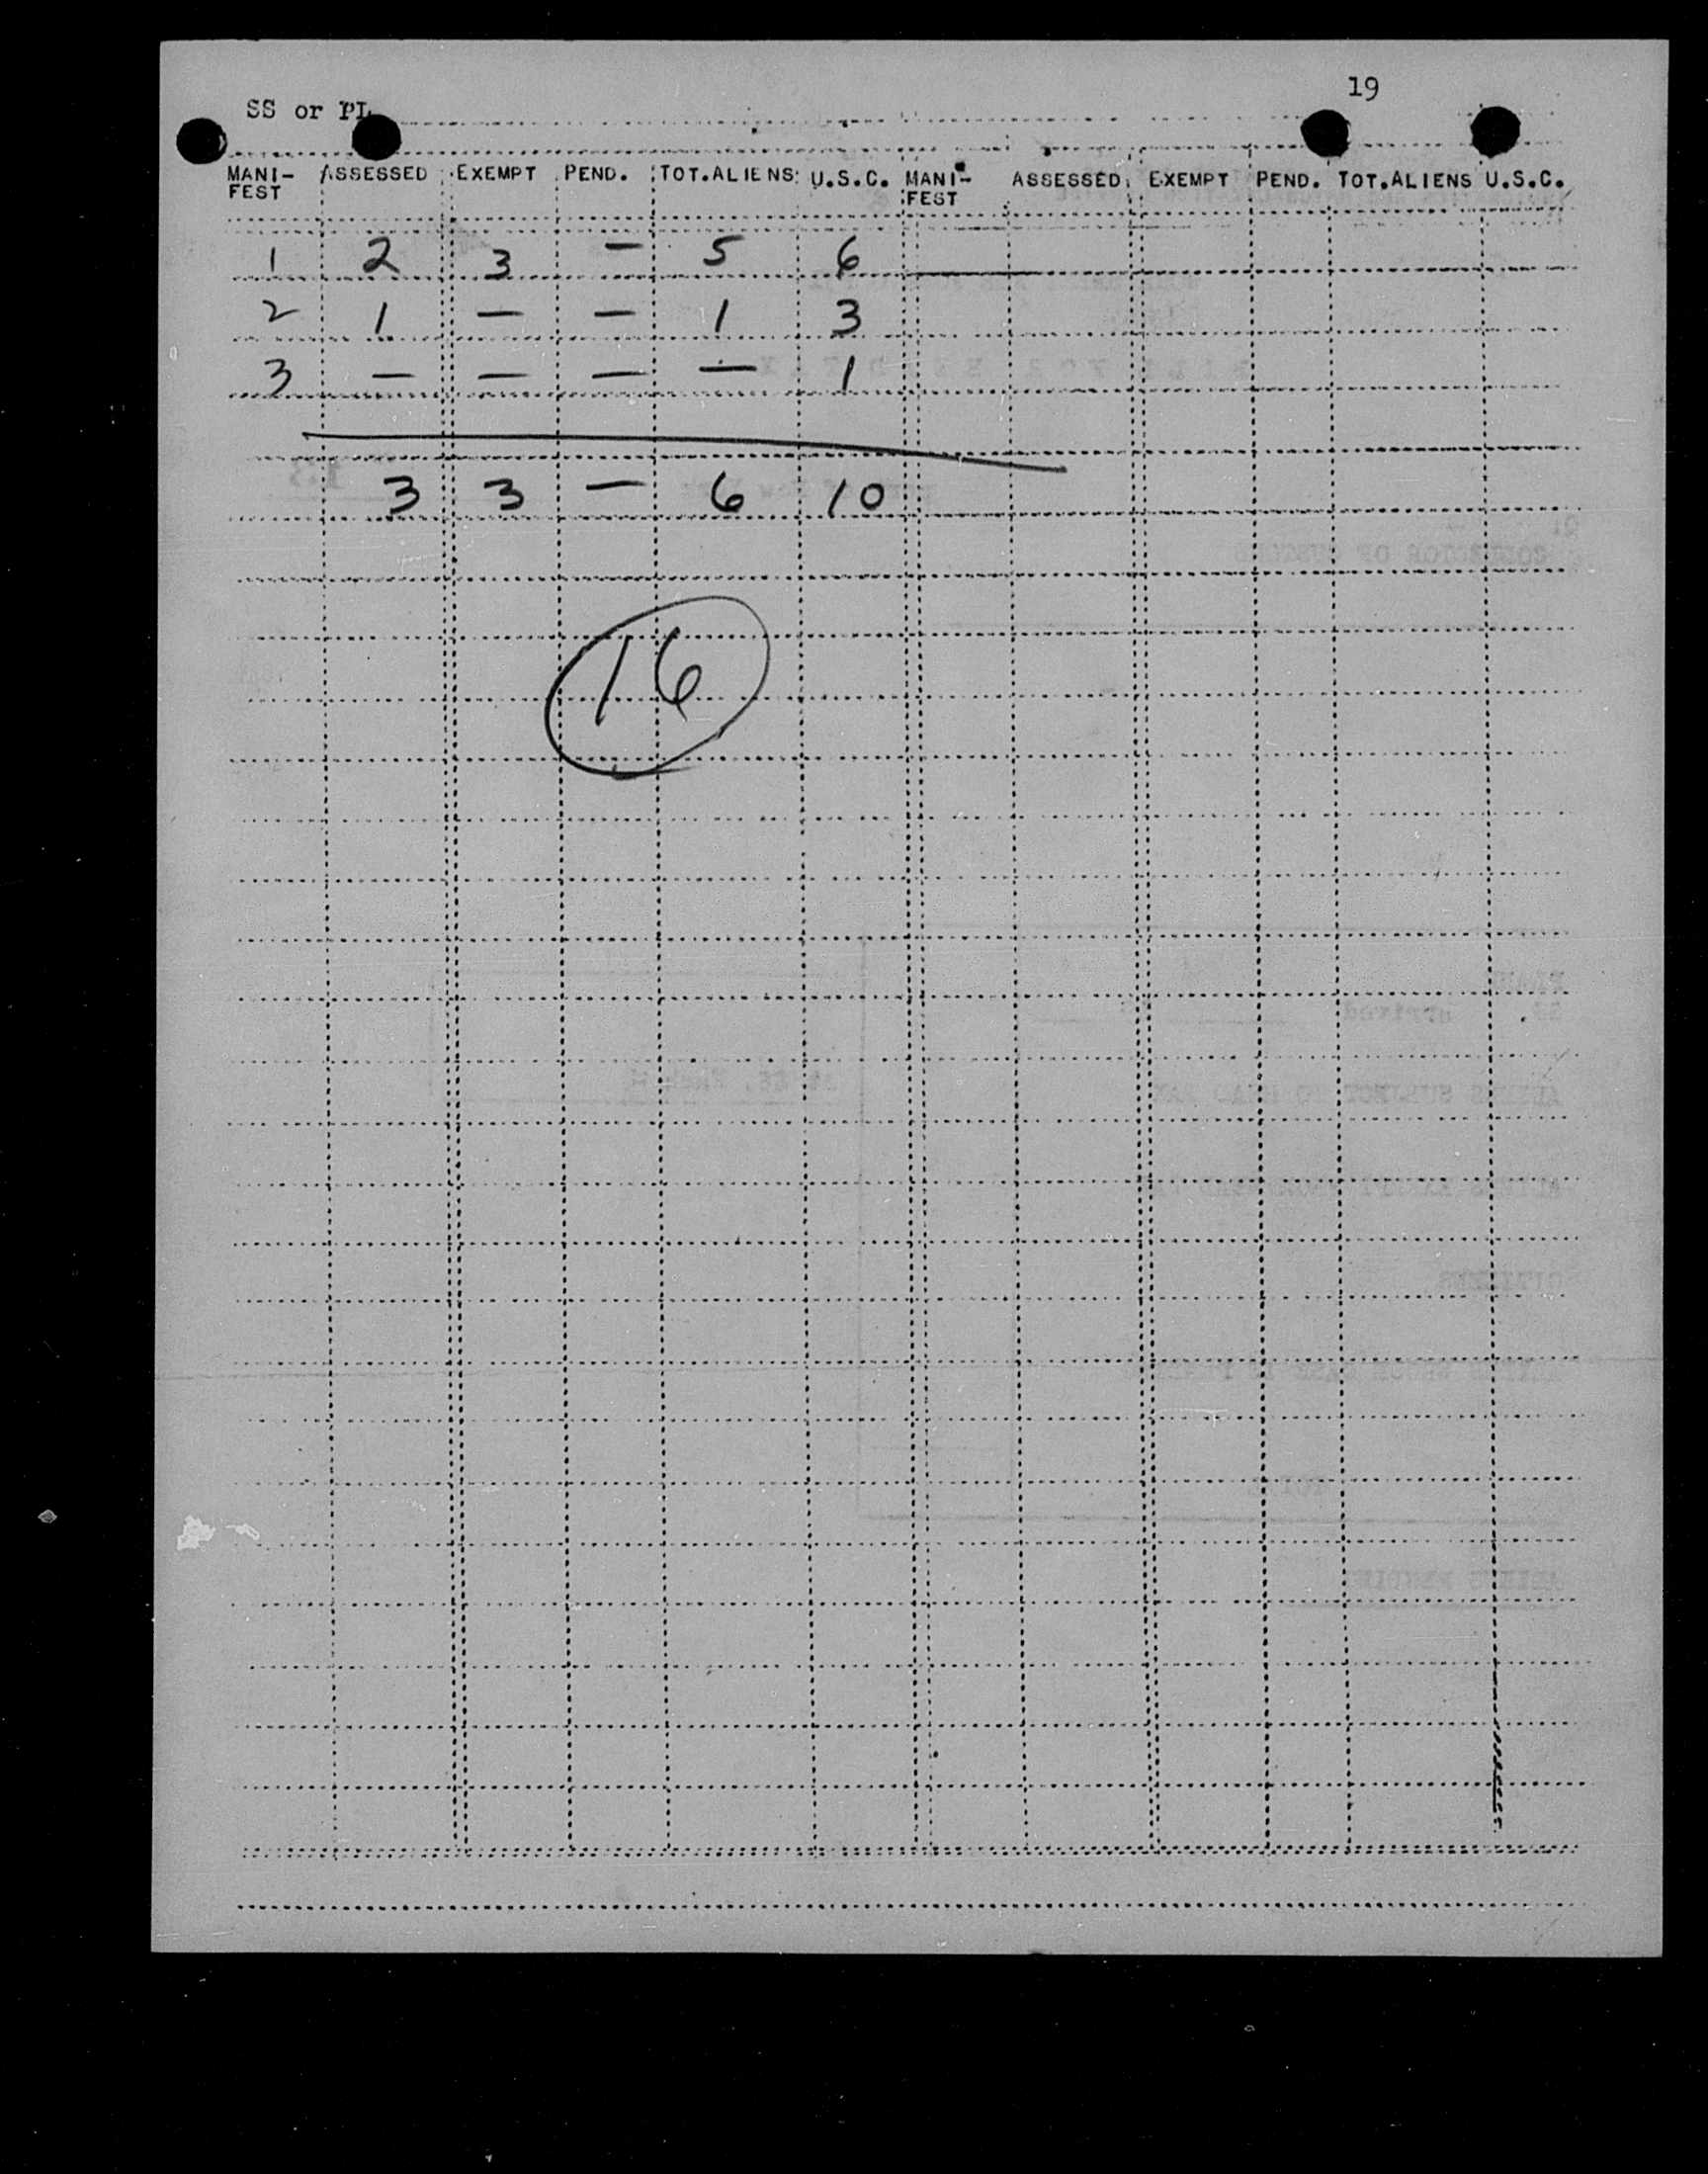 19
SS or PL
MANI- ASSESSED EXEMPT PEND. TOT.ALIENS U.S.C. MANI- ASSESSED EXEMPT PEND. TOT.ALIENS U.S.C.
FEST FEST
1 2 3 — 5 6
2 1 — — 1 3
3 — — — — 1
3 3 — 6 10
16